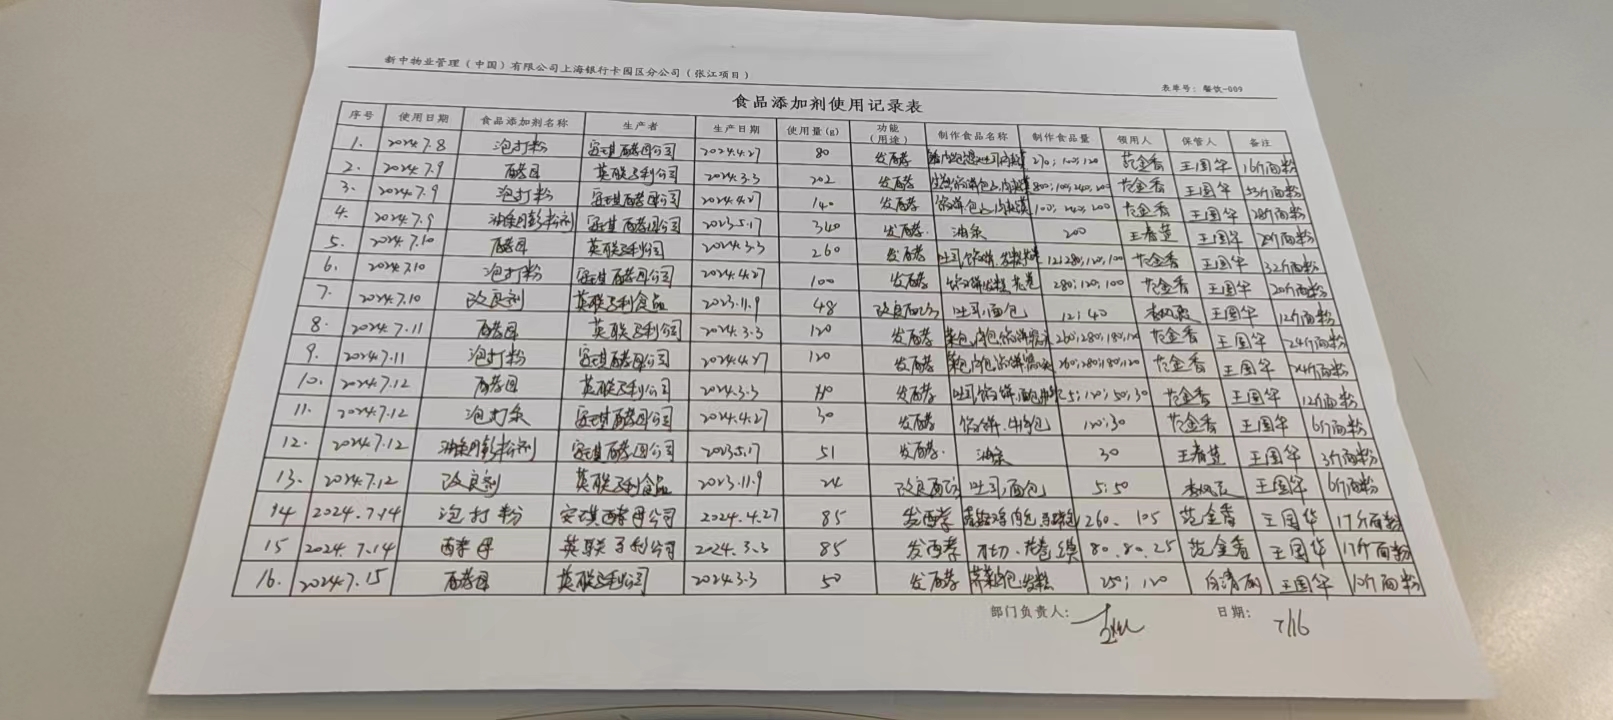 新中物业管理（中国）有限公司上海银行卡园区分公司（张江项目）
表单号：餐饮-009
食品添加剂使用记录表
序号 使用日期 食品添加剂名称 生产者 生产日期 使用量(g) 功能（用途） 制作食品名称 制作食品量 领用人 保管人 备注
1. 2024.7.8 泡打粉 安琪酵母公司 2024.4.27 80 发酵 270; 100; 120 范金香 王国华 16斤面粉
2. 2024.7.9 酵母 英联马利公司 2024.3.3 202 发酵 80; 100; 240; 200 范金香 王国华 33斤面粉
3. 2024.7.9 泡打粉 安琪酵母公司 2024.4.27 140 发酵 100; 240; 200 范金香 王国华 28斤面粉
4. 2024.7.9 油条用膨松剂 安琪酵母公司 2023.5.17 340 发酵. 油条 200 王春楚 王国华 20斤面粉
5. 2024.7.10 酵母 英联马利公司 2024.3.3 260 发酵 12; 280; 120; 100 范金香 王国华 32斤面粉
6. 2024.7.10 泡打粉 安琪酵母公司 2024.4.27 100 发酵 280; 120; 100 范金香 王国华 20斤面粉
7. 2024.7.10 改良剂 英联马利食品 2023.11.9 48 改良面 吐司,面包 12; 40 王国华 12斤面粉
8. 2024.7.11 酵母 英联马利公司 2024.3.3 120 发酵 260; 280; 180; 120 范金香 王国华 24斤面粉
9. 2024.7.11 泡打粉 安琪酵母公司 2024.4.27 120 发酵 260; 280; 180; 120 范金香 王国华 24斤面粉
10. 2024.7.12 酵母 英联马利公司 2024.3.3 发酵 5; 120; 50; 30 范金香 王国华 12斤面粉
11. 2024.7.12 泡打粉 安琪酵母公司 2024.4.27 30 发酵 120; 30 范金香 王国华 6斤面粉
12. 2024.7.12 油条用膨松剂 安琪酵母公司 2023.5.17 51 发酵. 油条 30 王春楚 王国华 3斤面粉
13. 2024.7.12 改良剂 英联马利食品 2023.11.9 24 改良面 吐司,面包 5; 50 王国华 6斤面粉
14 2024.7.14 泡打粉 安琪酵母公司 2024.4.27 85 发酵 260. 105 范金香 王国华 17斤面粉
15 2024.7.14 酵母 英联马利公司 2024.3.3 85 发酵 80.80.25 范金香 王国华 17斤面粉
16. 2024.7.15 酵母 英联马利公司 2024.3.3 50 发酵 250; 120 王国华 10斤面粉
部门负责人： 日期： 7/16